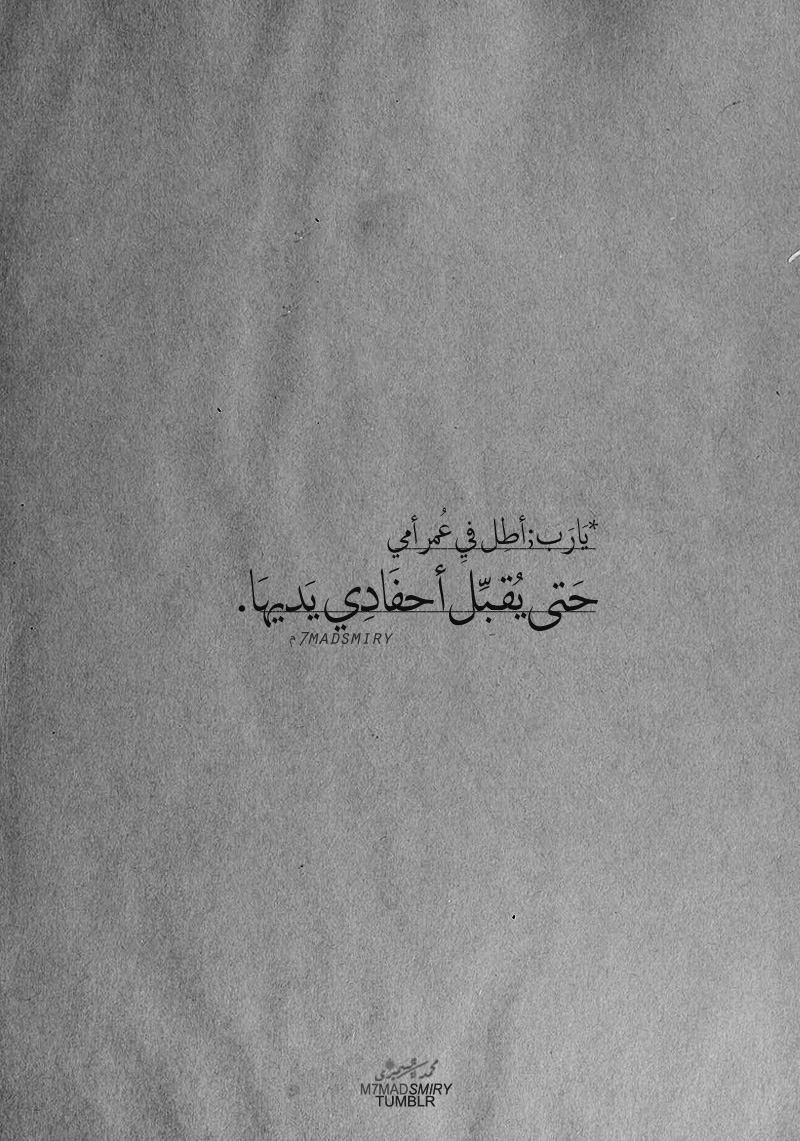 *يَارَب;أطِل في عُمر أمي
حَتى يُقبِّل أحفَادِي يَديهَا.
م7MADSMIRY
M7MADSMIRY
TUMBLR